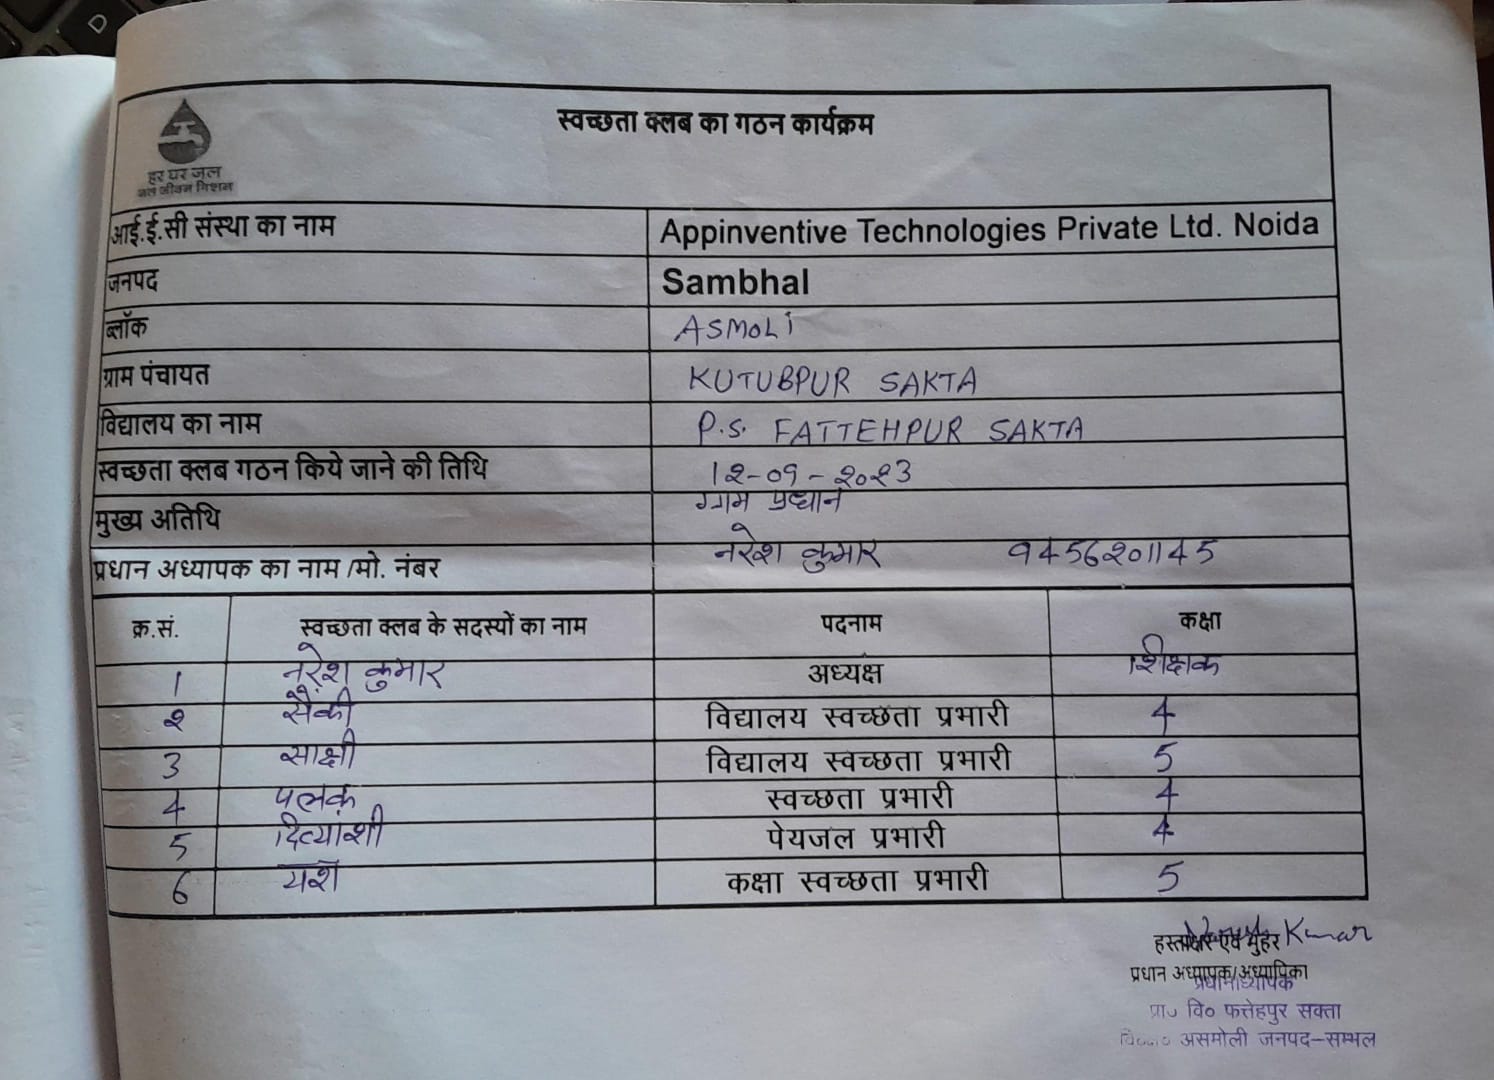 D
स्वच्छता क्लब का गठन कार्यक्रम
हर घर जल
जल जीवन मिशन
आई.ई.सी संस्था का नाम Appinventive Technologies Private Ltd. Noida
जनपद Sambhal
ब्लॉक ASMOLi
ग्राम पंचायत KUTUBPUR SAKTA
विद्यालय का नाम P.S. FATTEHPUR SAKTA
स्वच्छता क्लब गठन किये जाने की तिथि 12-09-2023
मुख्य अतिथि ग्राम प्रधान
प्रधान अध्यापक का नाम /मो. नंबर नरेश कुमार 9456201145
क्र.सं. स्वच्छता क्लब के सदस्यों का नाम पदनाम कक्षा
1 नरेश कुमार अध्यक्ष शिक्षक
2 सैंकी विद्यालय स्वच्छता प्रभारी 4
3 साक्षी विद्यालय स्वच्छता प्रभारी 5
4 पलक स्वच्छता प्रभारी 4
5 दिव्यांशी पेयजल प्रभारी 4
6 यश कक्षा स्वच्छता प्रभारी 5
Kumar
हस्ताक्षर एवं मुहर
प्रधान अध्यापक/अध्यापिका
प्रधानाध्यापक
प्रा० वि० फत्तेहपुर सक्ता
असमोली जनपद-सम्भल